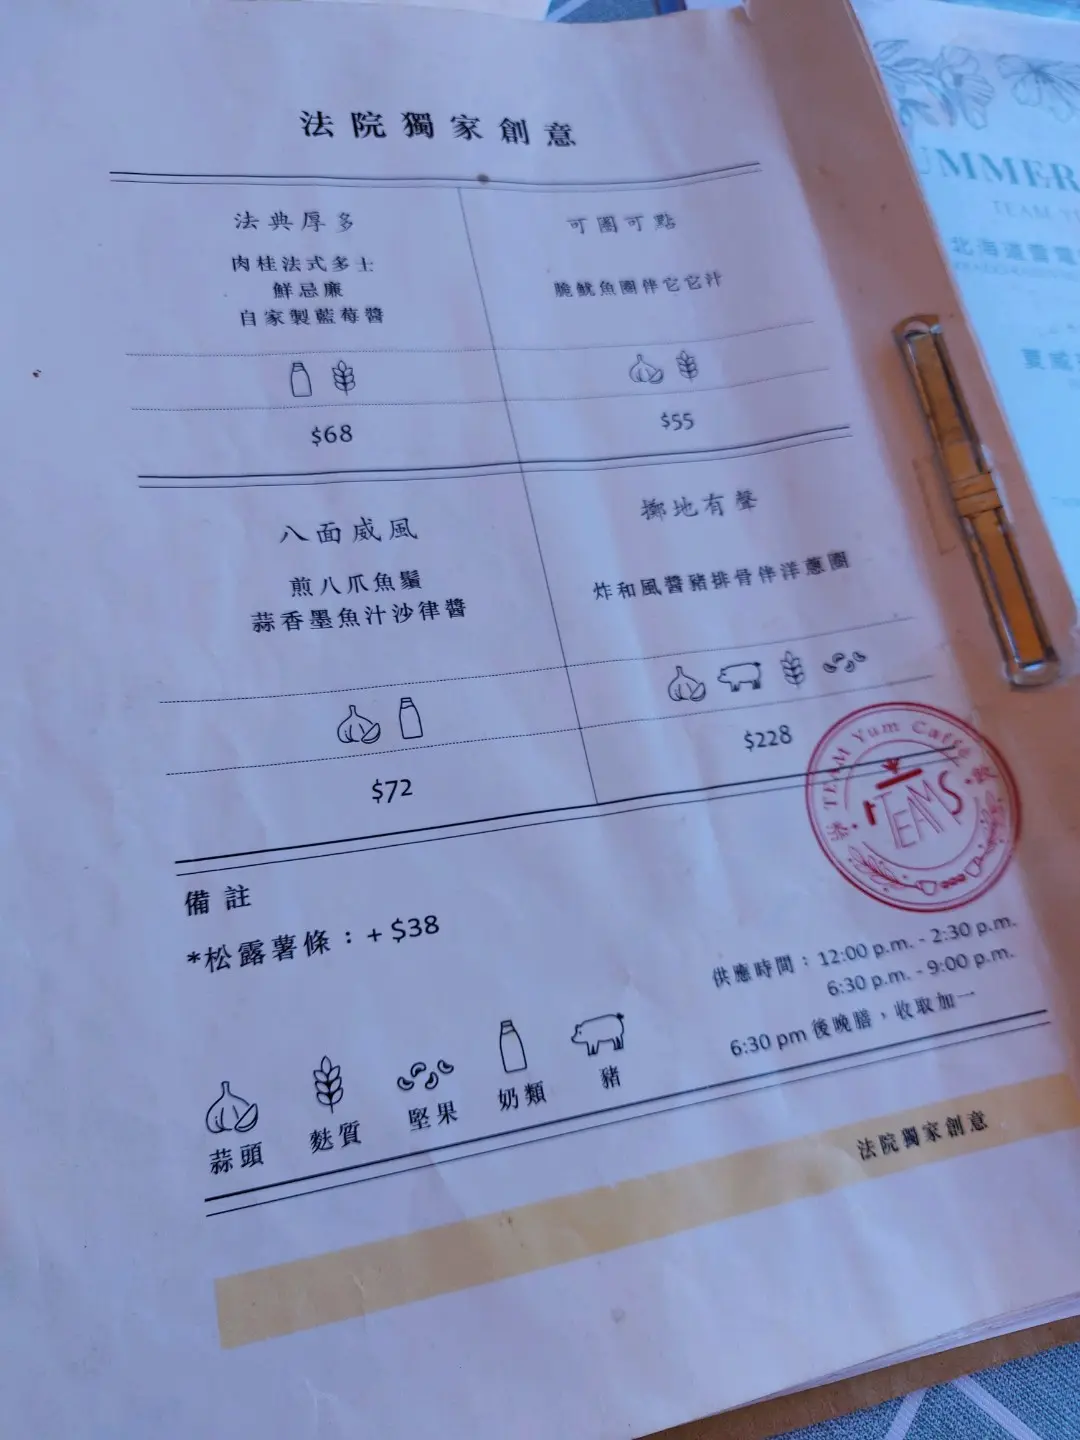 法院獨家創意
法典厚多
肉桂法式多士
鮮忌廉
自家製藍莓醬
$68
可圈可點
脆魷魚圈伴它它汁
$55
八面威風
煎八爪魚鬚
蒜香墨魚汁沙律醬
$72
擲地有聲
炸和風醬豬排骨伴洋蔥圈
$228
備註
*松露薯條：+ $38
供應時間：12:00 p.m. - 2:30 p.m.
6:30 p.m. - 9:00 p.m.
6:30 pm 後晚膳，收取加一
蒜頭
麩質
堅果
奶類
豬
法院獨家創意
TEAM Yum Caffè
TEAMS
UMMER
TEAM
北海道
夏威